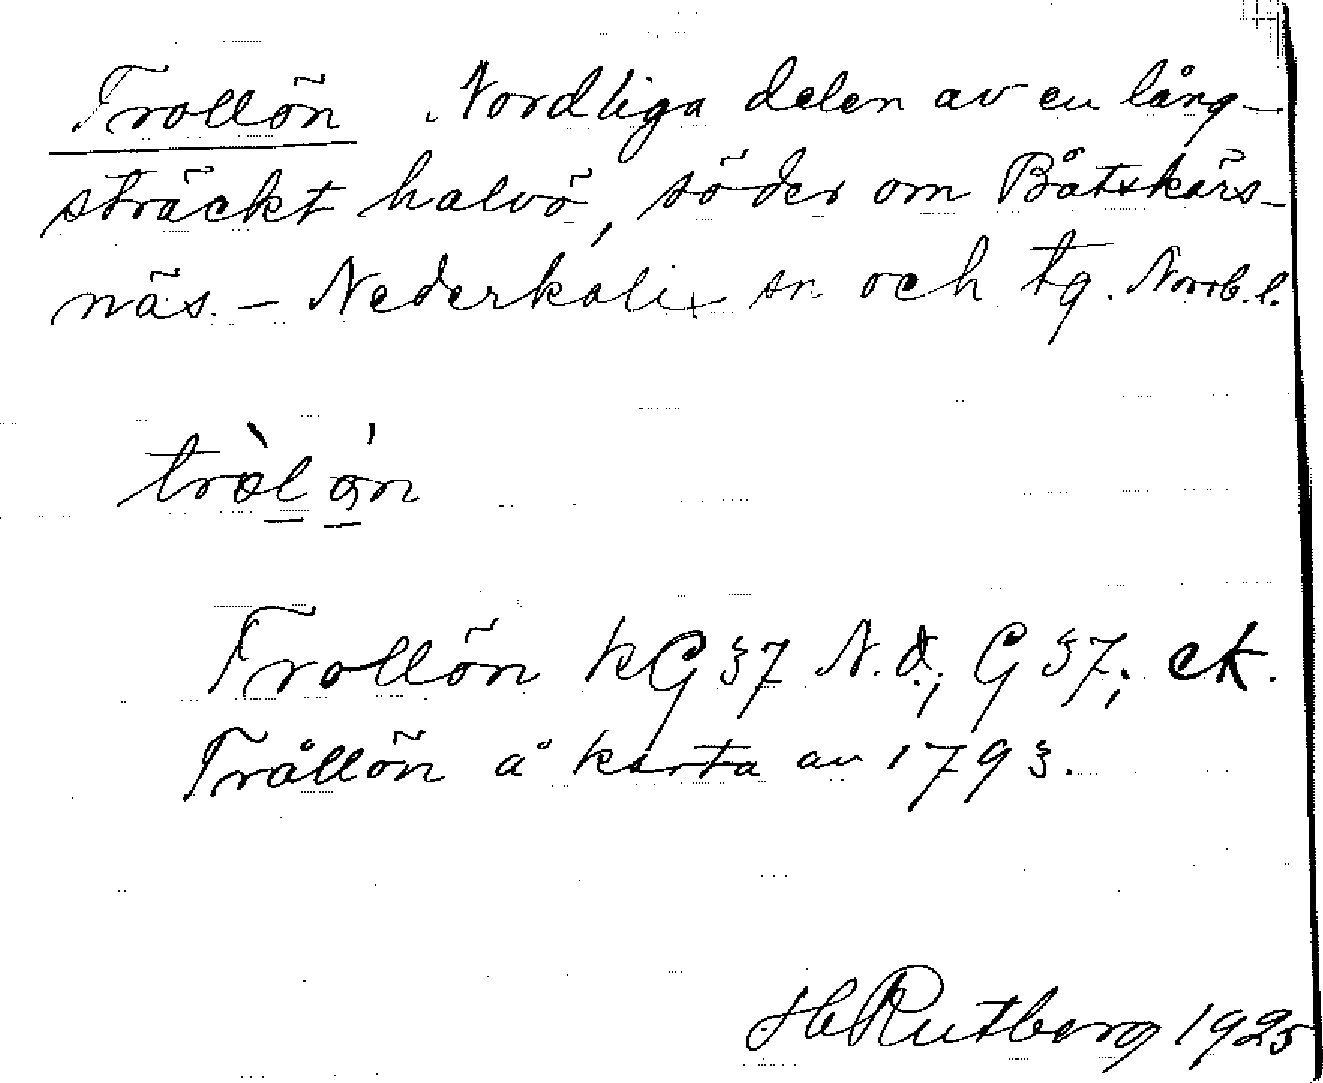 Trollön Nordliga delen av en lång-
sträckt halvö, söder om Båtskärs-
näs. - Nederkalix sn och tg. Norrb. l.
tròl ǫ́n
Trollön kG 37 N.d., G 37; ek.
Trållön å karta av 1793.
H Rutberg 1925